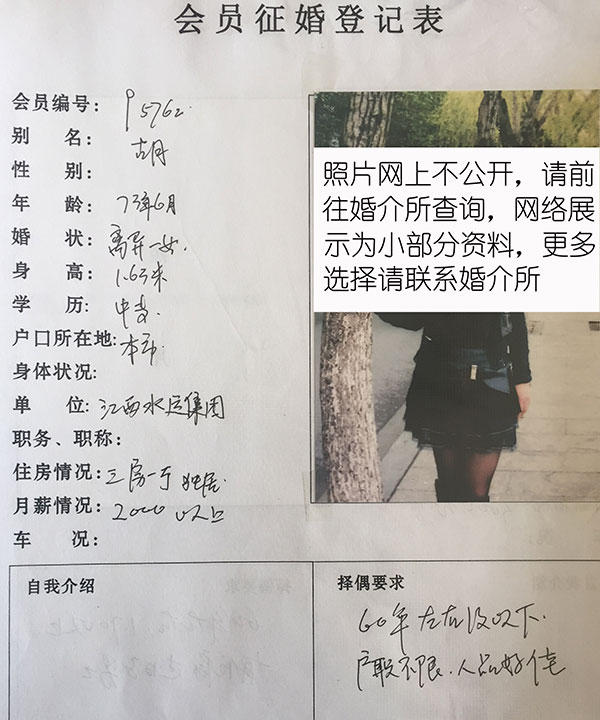 会员征婚登记表
会员编号: 5762
别 名: 胡
性 别:
年 龄: 73年6月
婚 状: 离异一女.
身 高: 1.63米
学 历: 中专.
户口所在地: 本市.
身体状况:
单 位: 江西水运集团
职务、职称:
住房情况: 三房一厅 独居.
月薪情况: 2000 以上
车 况:
照片网上不公开，请前
往婚介所查询，网络展
示为小部分资料，更多
选择请联系婚介所
自我介绍
择偶要求
60年左右及以下.
户职不限.人品好佳